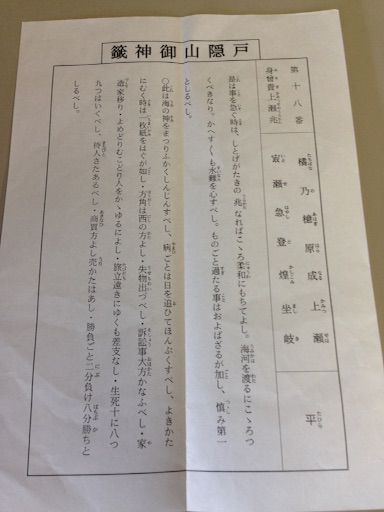 戸隠山御神籤
第十八番
身曾貴上瀬兆
橘乃檍原成上瀬
宙瀬急登煌坐岐
平
是は事を急ぐ時は、しとげがたきの兆なればこゝろ柔和にもちてよし。海河を渡るにこゝろつ
くべきなり。かへすぐも水難を心すべし。ものごと過たる事はおよばざるが如し、慎み第一
とじるべし。
〇此は海の神をまつりふかくしんじんすべし、病ごとは日を追ひてほんぷくすべし、よきかた
にむく時は一枚紙をはぐが如し・方角は西の方よし・失物出づべし・訴訟事大方かなふべし・家
造家移り・よめどりむこどり人をかゝゆるによし・旅立遠きにゆくも差支なし・生死十に八つ
九つはいくべし、待人さたあるべし・商買方よし売かたはあし・勝負ごと二分負け八分勝ちと
しるべし。